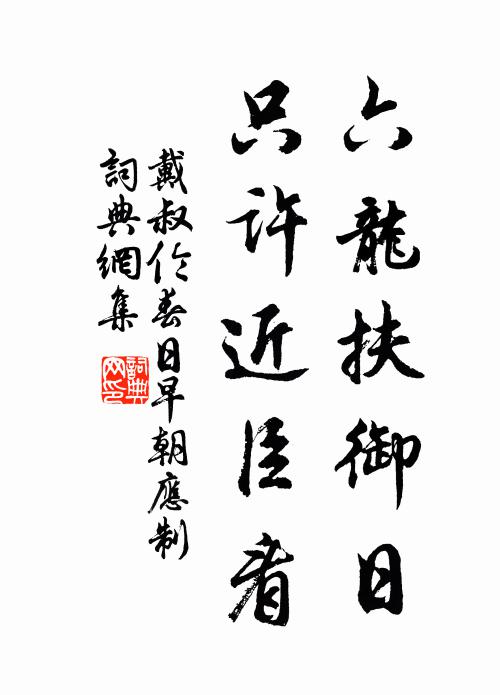 六龍扶御日
只許近臣看
戴叔伦春日早朝應制
詞典網集
詞典
网印